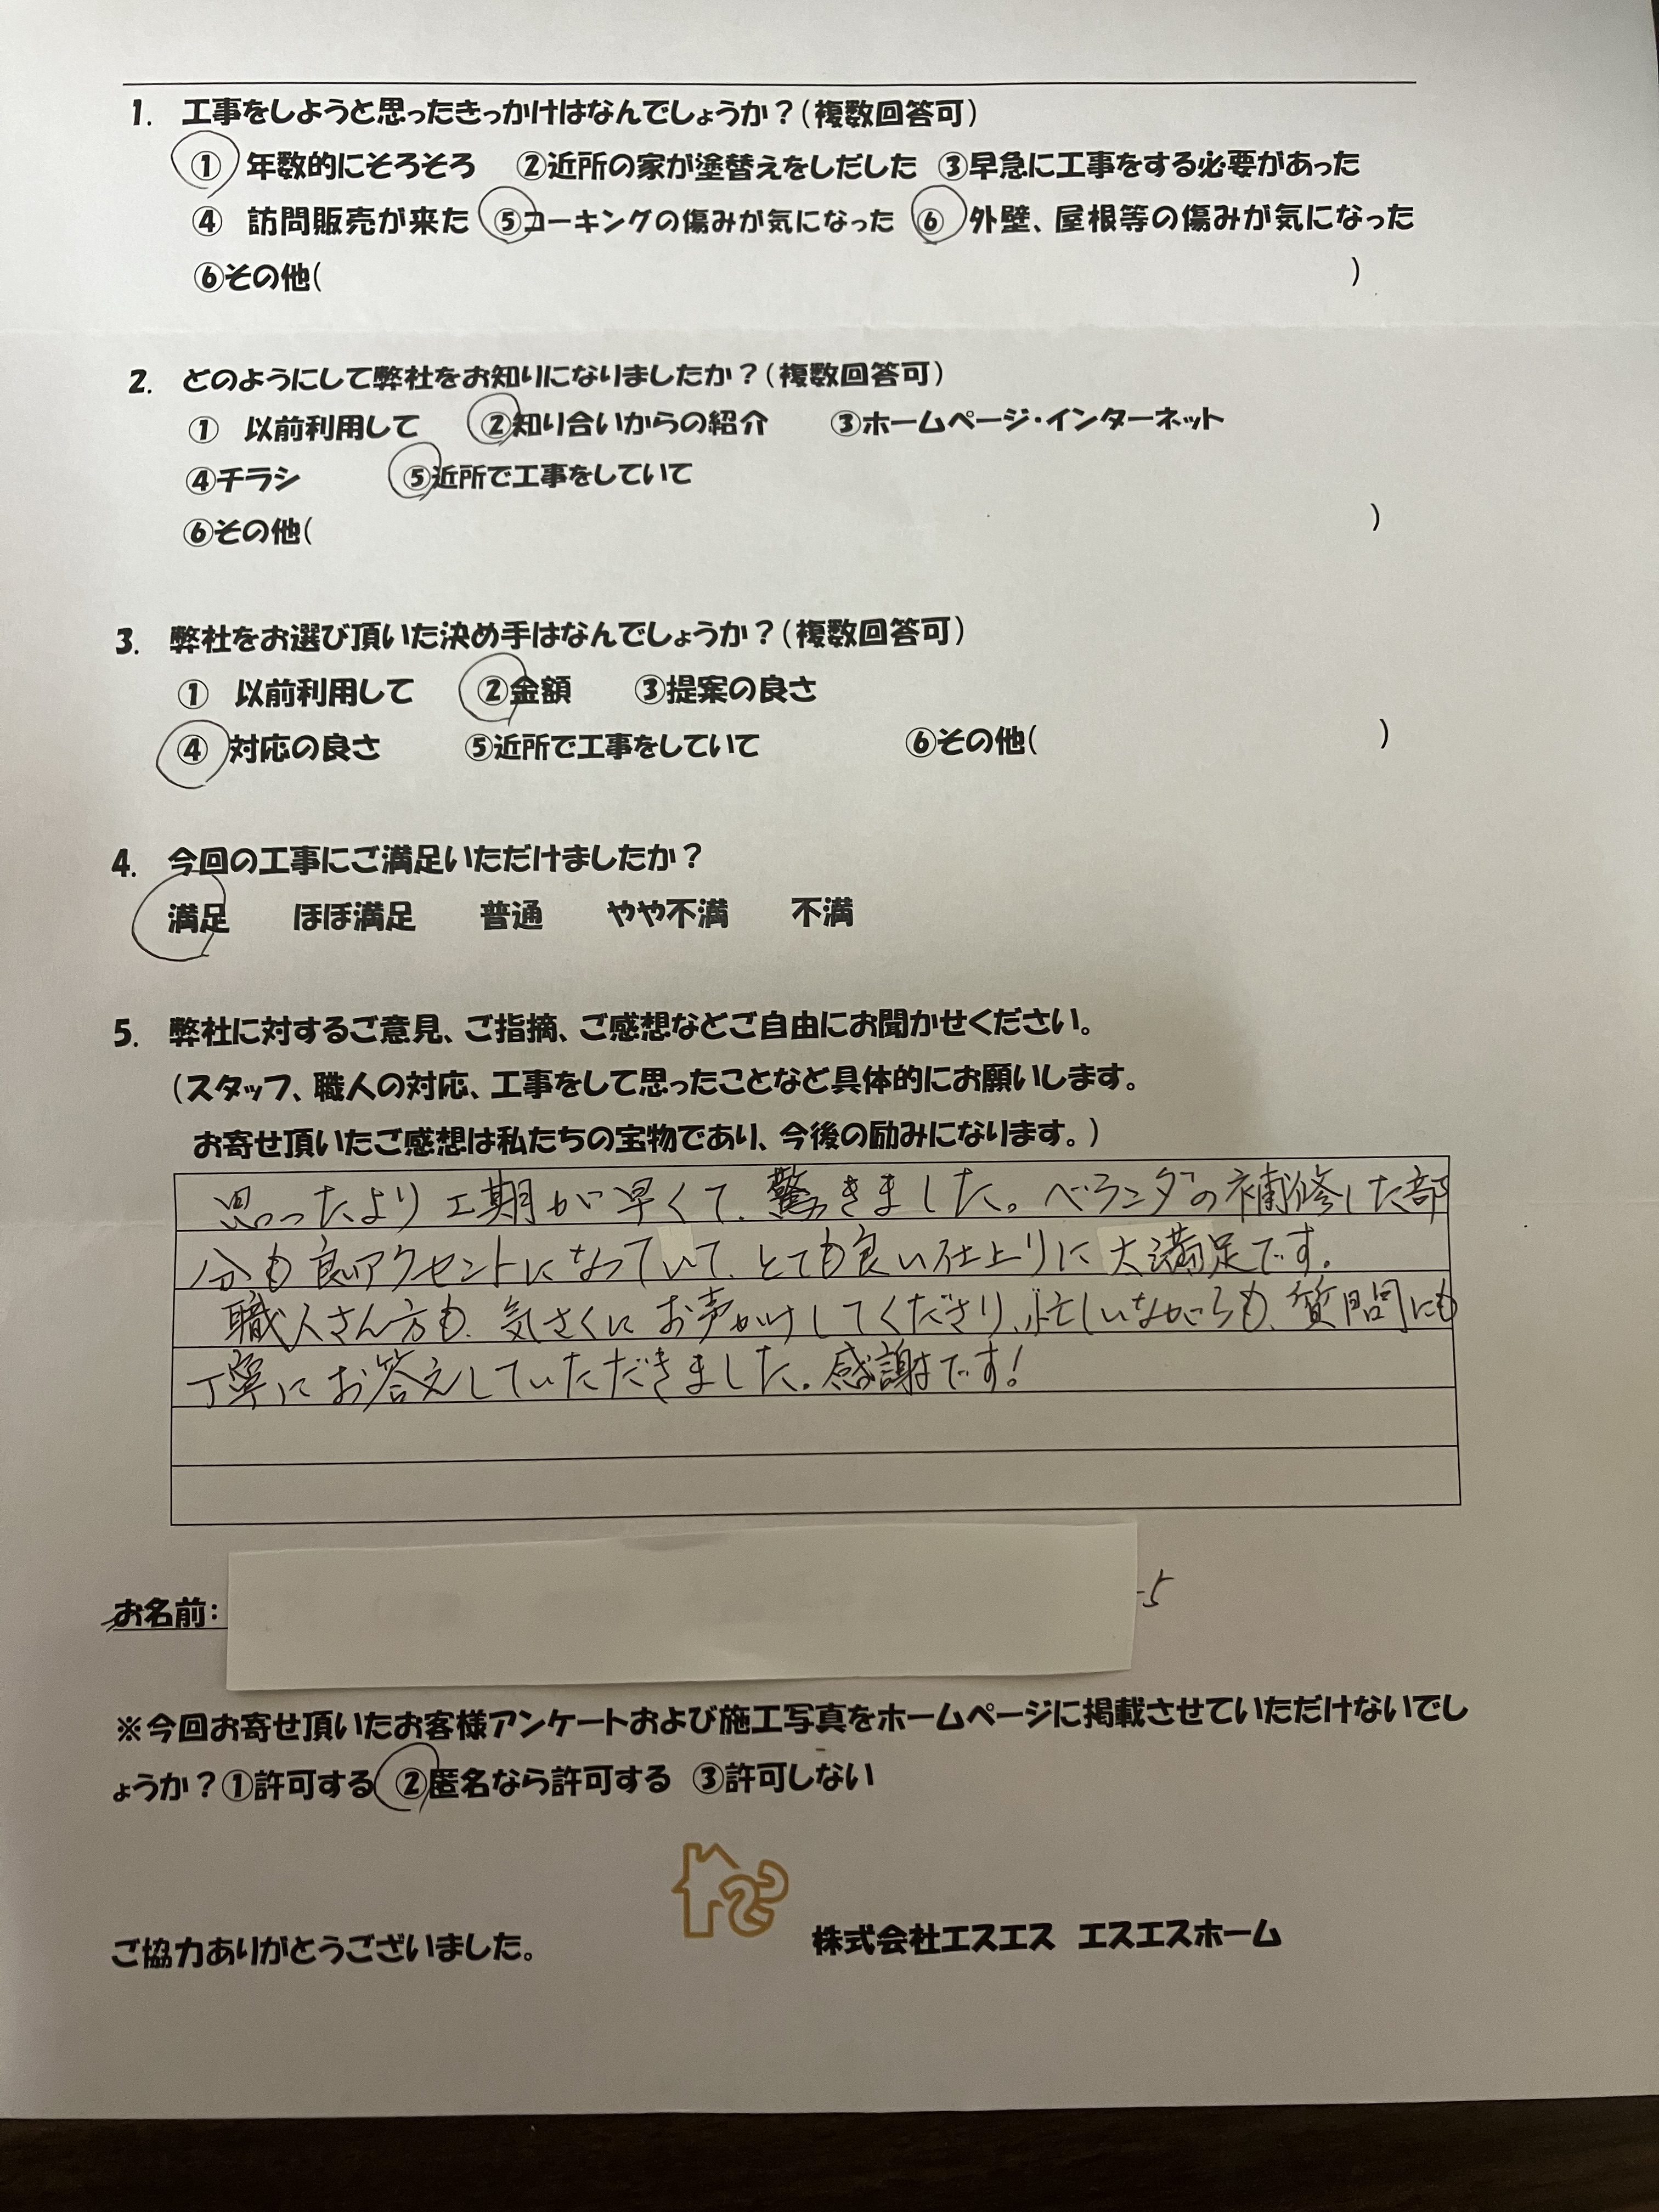 1. 工事をしようと思ったきっかけはなんでしょうか？(複数回答可)
① 年数的にそろそろ ②近所の家が塗替えをしだした ③早急に工事をする必要があった
④ 訪問販売が来た ⑤コーキングの傷みが気になった ⑥ 外壁、屋根等の傷みが気になった
⑥その他( )
2. どのようにして弊社をお知りになりましたか？(複数回答可)
① 以前利用して ②知り合いからの紹介 ③ホームページ・インターネット
④チラシ ⑤近所で工事をしていて
⑥その他( )
3. 弊社をお選び頂いた決め手はなんでしょうか？(複数回答可)
① 以前利用して ②金額 ③提案の良さ
④ 対応の良さ ⑤近所で工事をしていて ⑥その他( )
4. 今回の工事にご満足いただけましたか？
満足 ほぼ満足 普通 やや不満 不満
5. 弊社に対するご意見、ご指摘、ご感想などご自由にお聞かせください。
(スタッフ、職人の対応、工事をして思ったことなど具体的にお願いします。
お寄せ頂いたご感想は私たちの宝物であり、今後の励みになります。)
思ったより工期が早くて、驚きました。ベランダの補修した部
分も良いアクセントになっていて、とても良い仕上りに大満足です。
職人さん方も、気さくにお声がけしてくださり、忙しいながらも、質問にも
丁寧にお答えしていただきました。感謝です！
お名前： -5
※今回お寄せ頂いたお客様アンケートおよび施工写真をホームページに掲載させていただけないでし
ょうか？①許可する ②匿名なら許可する ③許可しない
ご協力ありがとうございました。 株式会社エスエス エスエスホーム